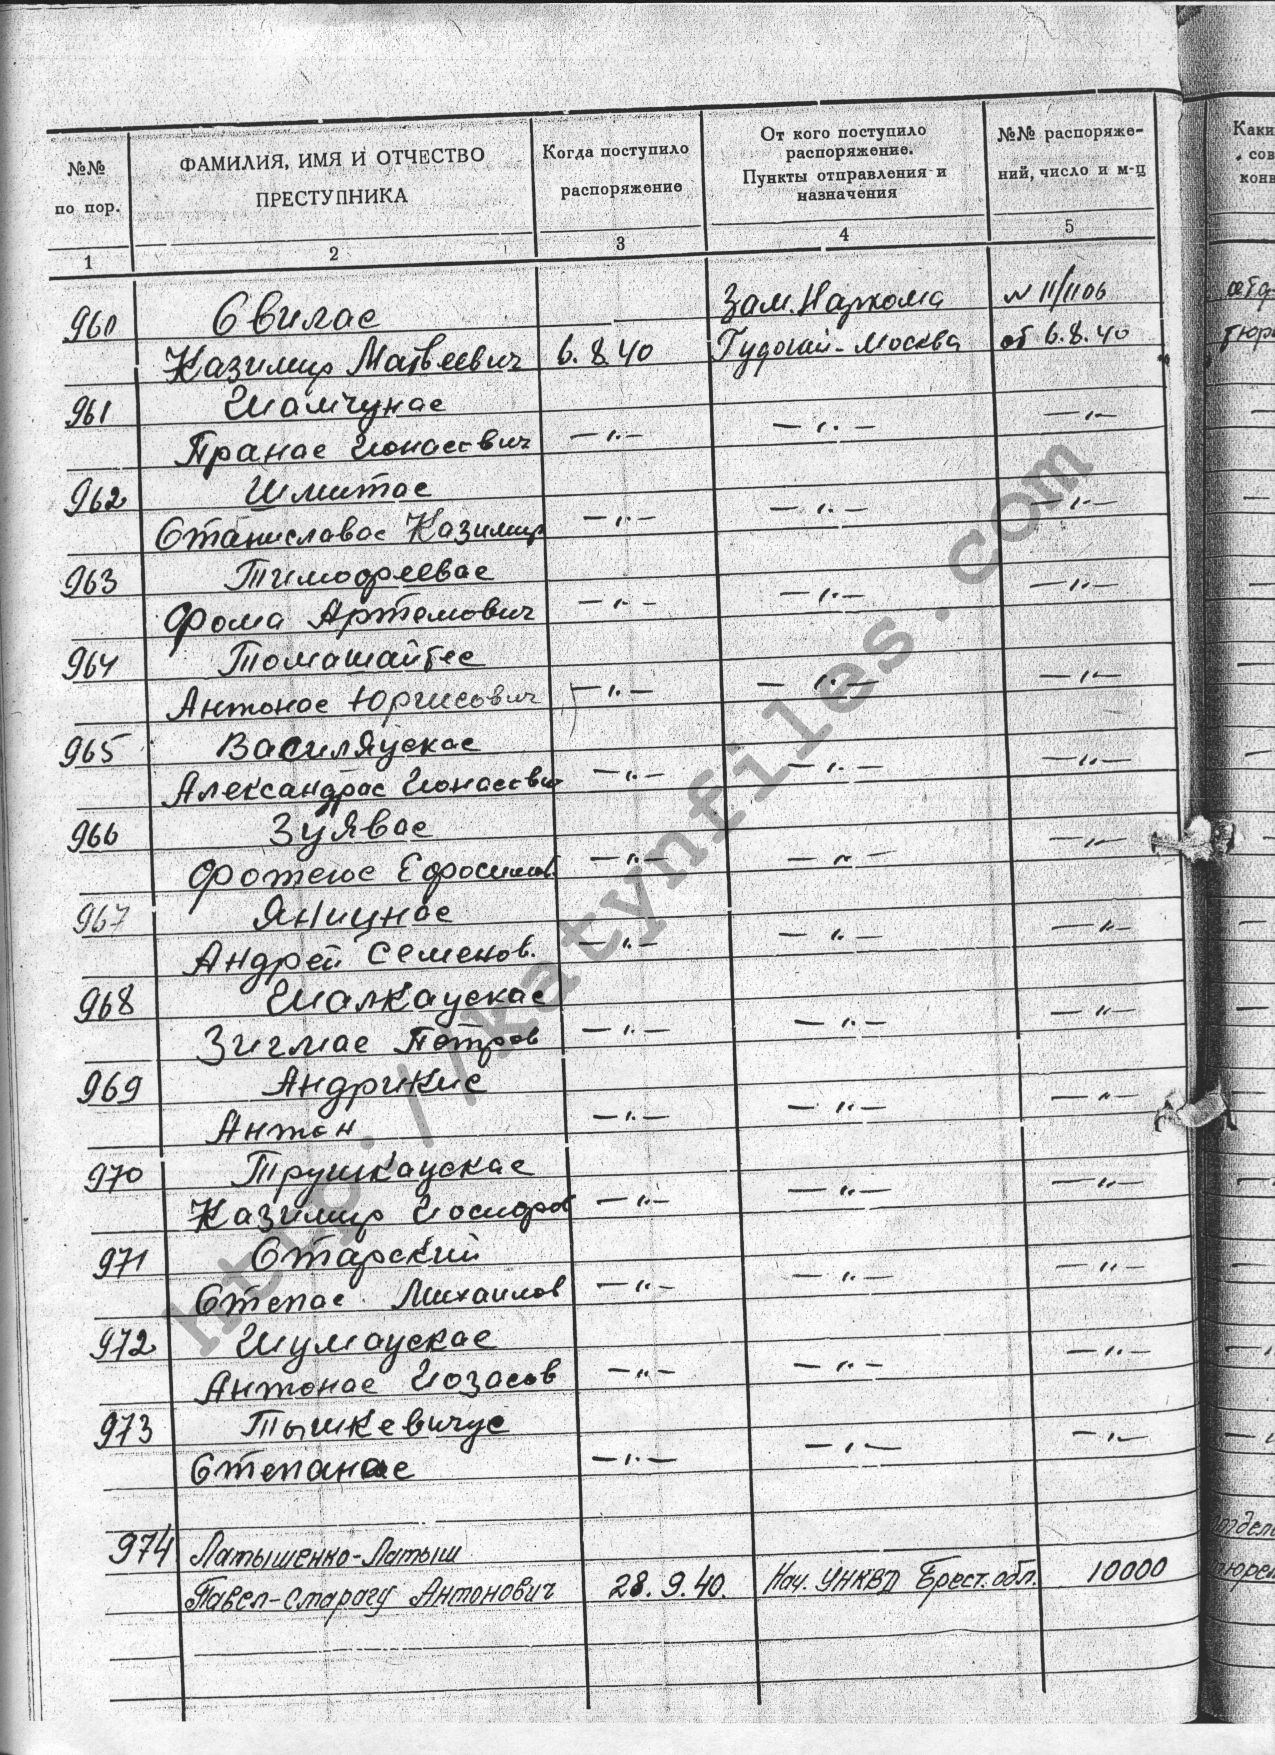 №№
по пор.
ФАМИЛИЯ, ИМЯ И ОТЧЕСТВО
ПРЕСТУПНИКА
Когда поступило
распоряжение
От кого поступило
распоряжение.
Пункты отправления и
назначения
№№ распоряже-
ний, число и м-ц
1 2 3 4 5
960 Свилас Зам. Наркома № 11/1106
Казимир Матвеевич 6.8.40 Гудогай-Москва от 6.8.40
961 Шамчунас
Пранас Ионасевич —"— —"— —"—
962 Шмитас
Станиславас Казимир —"— —"— —"—
963 Тимофеевас
Фома Артемович —"— —"— —"—
964 Томашайтес
Антонас Юргисович —"— —"— —"—
965 Василяускас
Александрас Ионасевич —"— —"— —"—
966 Зуявас
Фотеюс Ефросимов. —"— —"— —"—
967 Яницнас
Андрей Семенов. —"— —"— —"—
968 Шалкаускас
Зигмас Петров —"— —"— —"—
969 Андрикис
Антон —"— —"— —"—
970 Трушкаускас
Казимир Иосифов —"— —"— —"—
971 Старский
Степас Михайлов —"— —"— —"—
972 Шумаускас
Антонас Иозасов —"— —"— —"—
973 Тышкевичус
Степанас —"— —"— —"—
974 Латышенко-Латыш
Павел-Старагу Антонович 28.9.40. Нач. УНКВД Брест. обл. 10000
Каки
сов
конв
тюре
http://katynfiles.com